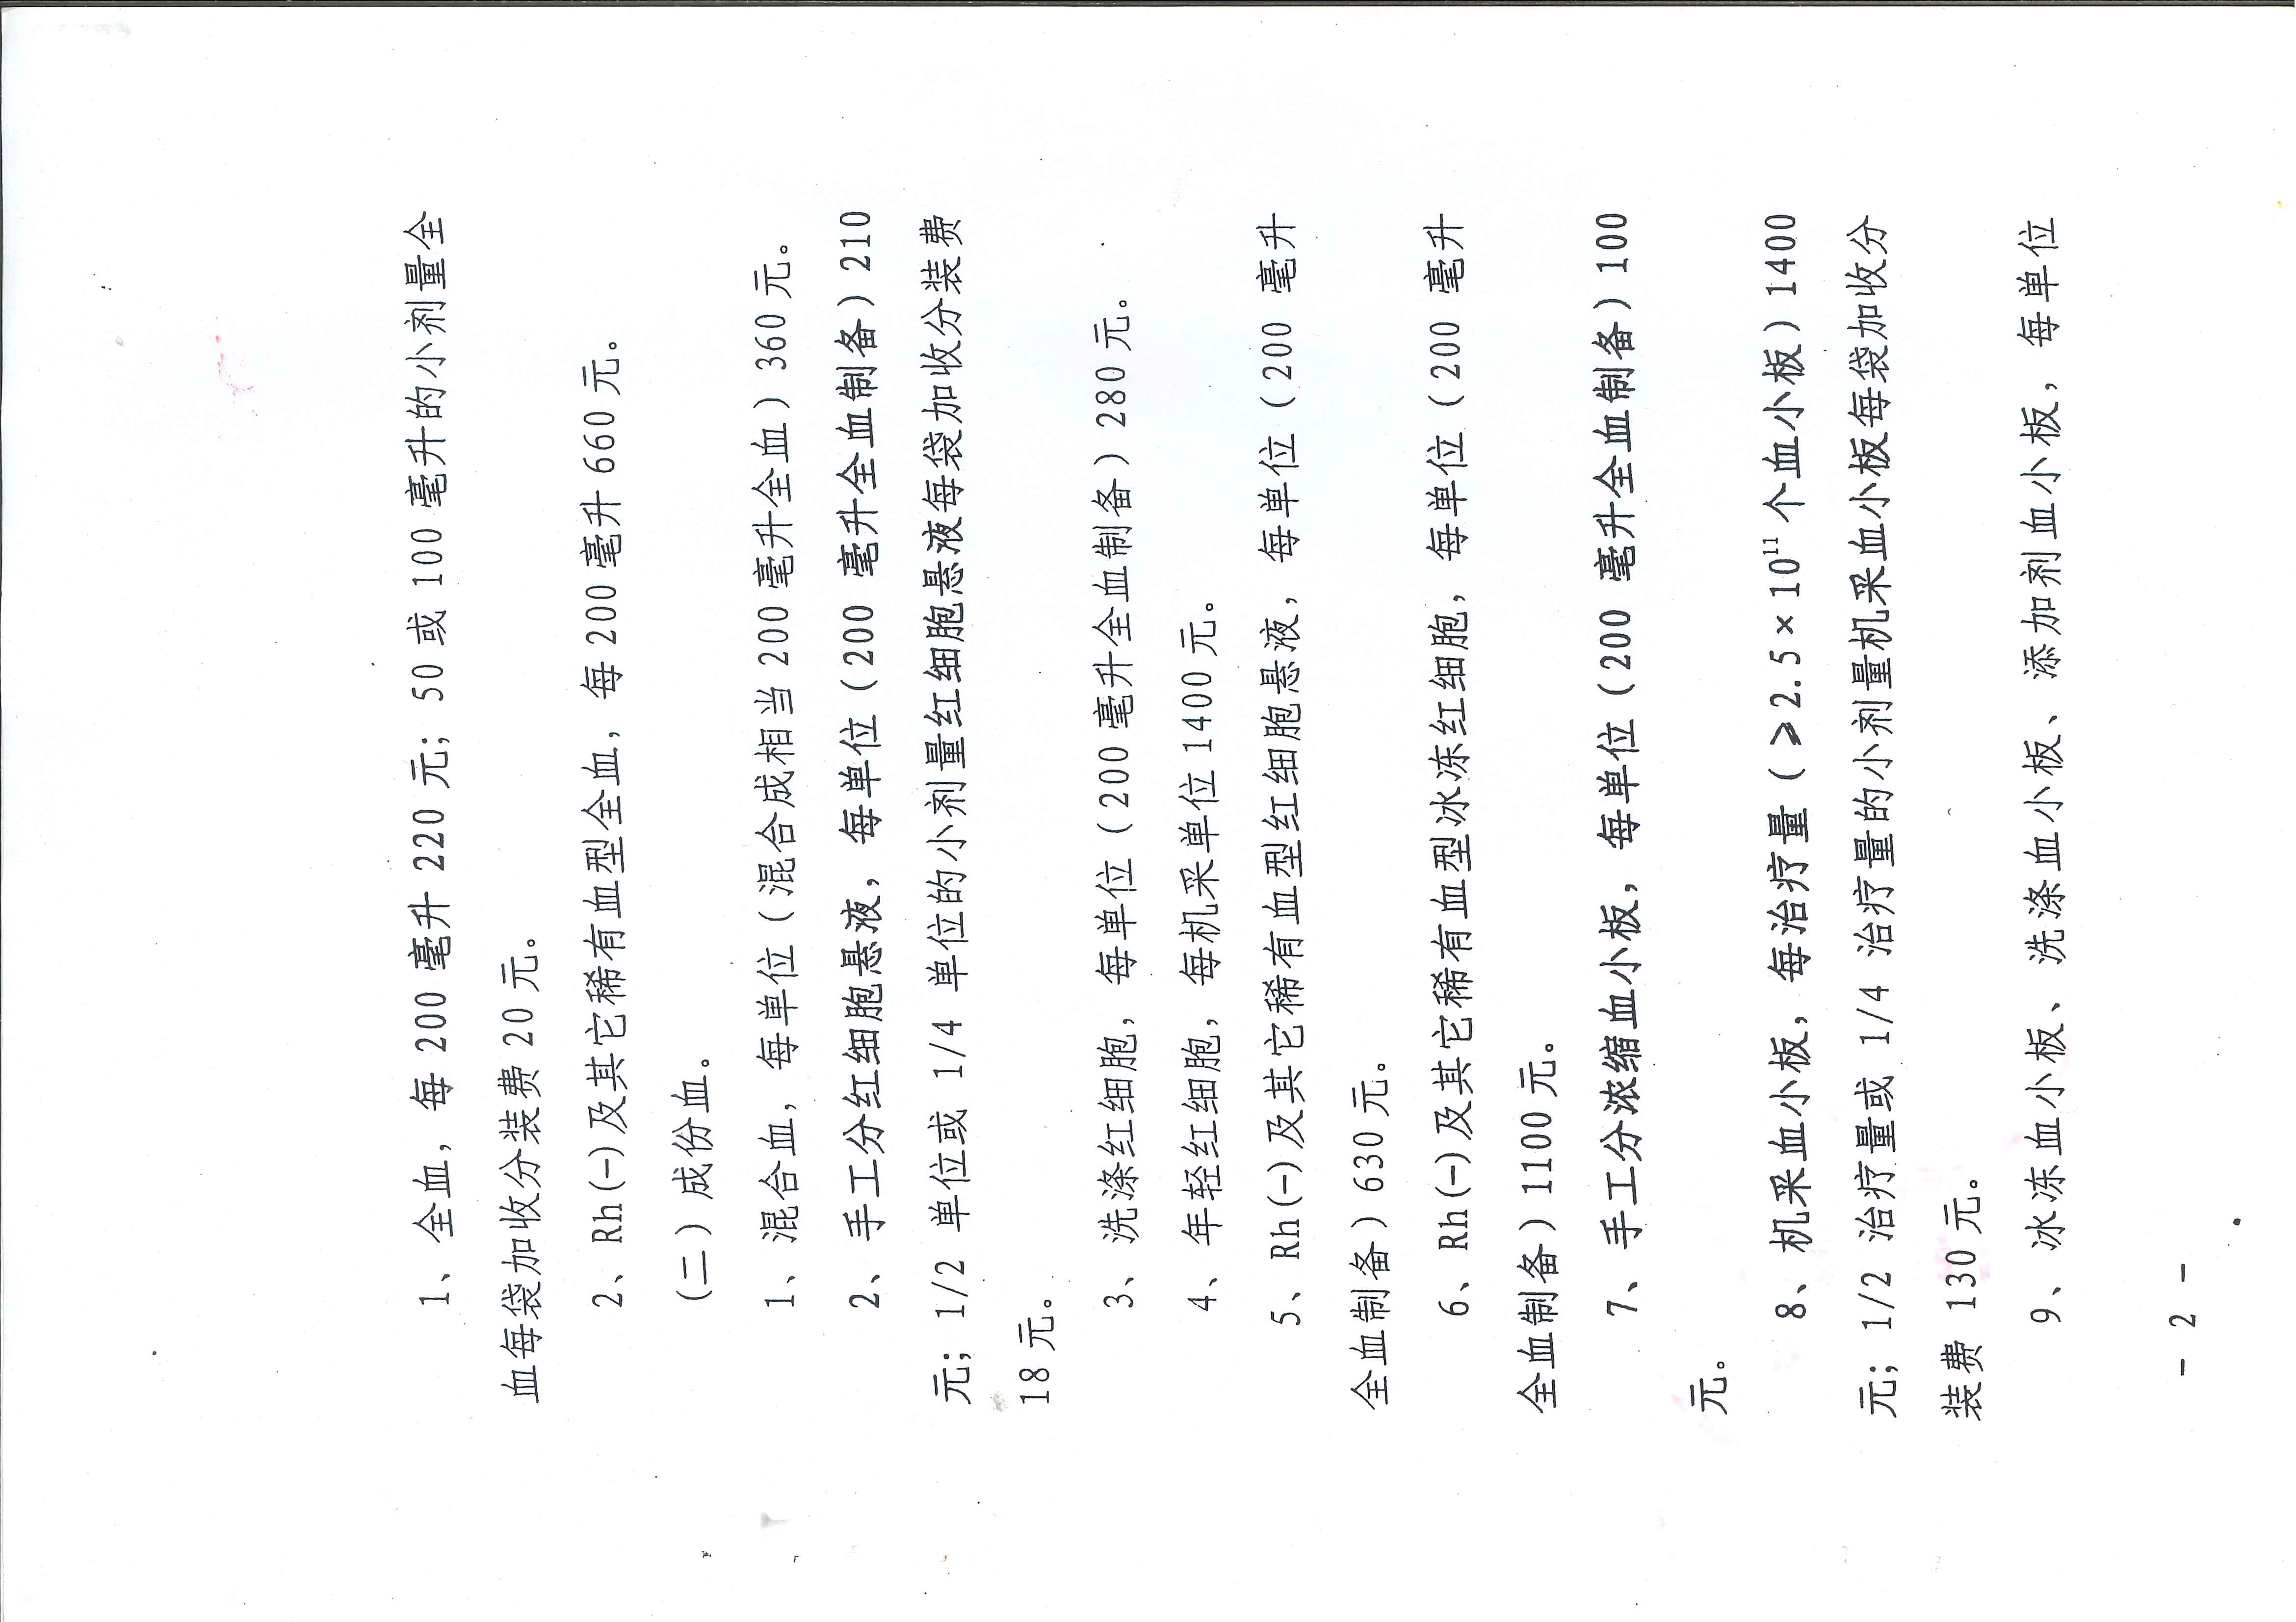 1、全血，每 200 毫升 220 元；50 或 100 毫升的小剂量全
血每袋加收分装费 20 元。
2、Rh(-)及其它稀有血型全血，每 200 毫升 660 元。
（二）成份血。
1、混合血，每单位（混合成相当 200 毫升全血）360 元。
2、手工分红细胞悬液，每单位（200 毫升全血制备）210
元；1/2 单位或 1/4 单位的小剂量红细胞悬液每袋加收分装费
18 元。
3、洗涤红细胞，每单位（200 毫升全血制备）280 元。
4、年轻红细胞，每机采单位 1400 元。
5、Rh(-)及其它稀有血型红细胞悬液，每单位（200 毫升
全血制备）630 元。
6、Rh(-)及其它稀有血型冰冻红细胞，每单位（200 毫升
全血制备）1100 元。
7、手工分浓缩血小板，每单位（200 毫升全血制备）100
元。
8、机采血小板，每治疗量（≥2.5×10¹¹ 个血小板）1400
元；1/2 治疗量或 1/4 治疗量的小剂量机采血小板每袋加收分
装费 130 元。
9、冰冻血小板、洗涤血小板、添加剂血小板，每单位
- 2 -